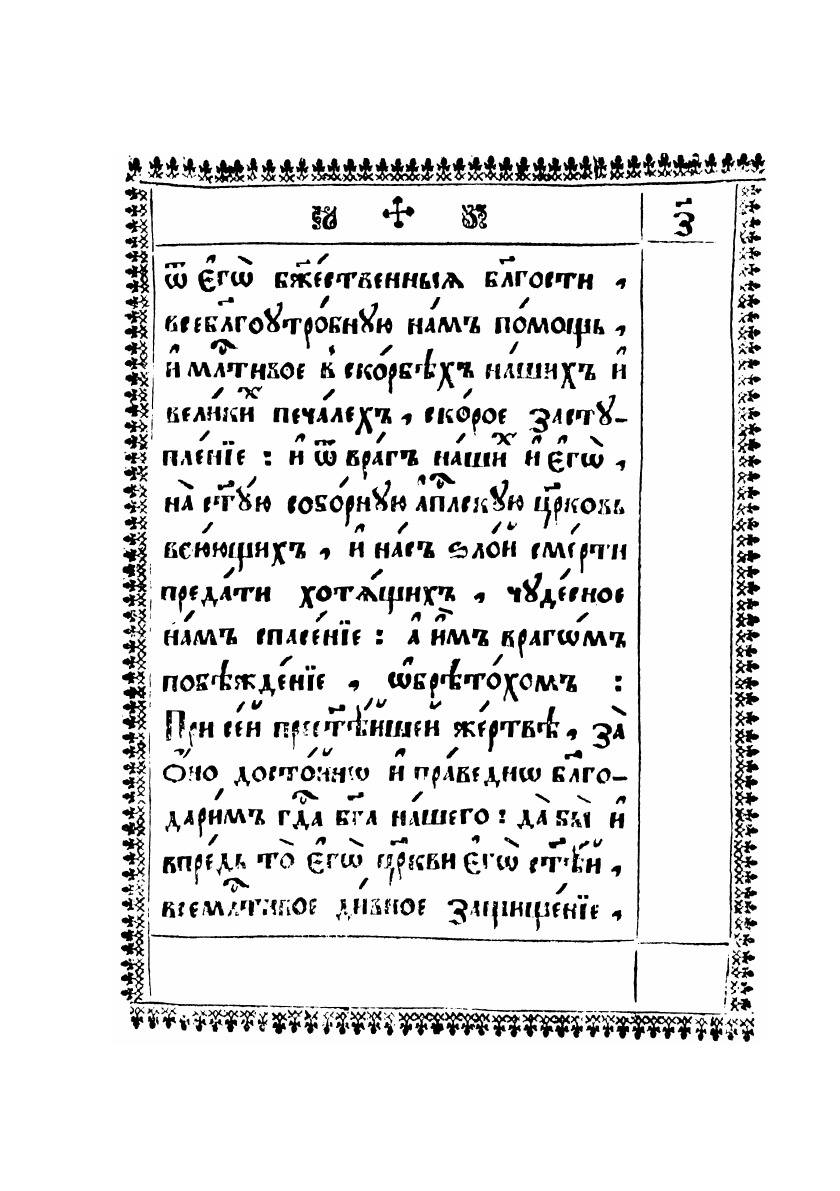 з҃
ѿ є҆гѡ̀ бж҃е́ственныѧ бл҃гости ,
всебл҃гоꙋтро́бнꙋю на́мъ по́мощь ,
и҆ млⷭ҇тивое в̾ ско́рбѣхъ на́шихъ и҆
вели́кихⷯ печа́лехъ , ско́рое застꙋ-
пле́нїе : и҆ ѿ вра̑гъ на́шиⷯ и҆ є҆гѡ̀ ,
на̀ ст҃ꙋ́ю собо́рнꙋю а҆пⷭ҇лскꙋю цр҃ковь
всю́ющихъ , и҆ на́съ ѕло́й сме́рти
преда́ти хотѧ́щихъ , чꙋде́сное
на́мъ спасе́нїе : а҆ и҆̀мъ врагѡ́мъ
побѣжде́нїе , ѡ҆брѣто́хомъ :
При се́й прест҃ѣ́йшей же́ртвѣ , за̀
Ѻ҆́но досто́йнѡ и҆ пра́веднѡ бл҃го-
дари́мъ гдⷭ҇а бг҃а на́шего : да̀ бы̀ и҆
впре́дь то̀ є҆гѡ̀ цр҃кви є҆гѡ̀ ст҃ѣ́й ,
всемлⷭ҇тивое ди́вное защище́нїе ,